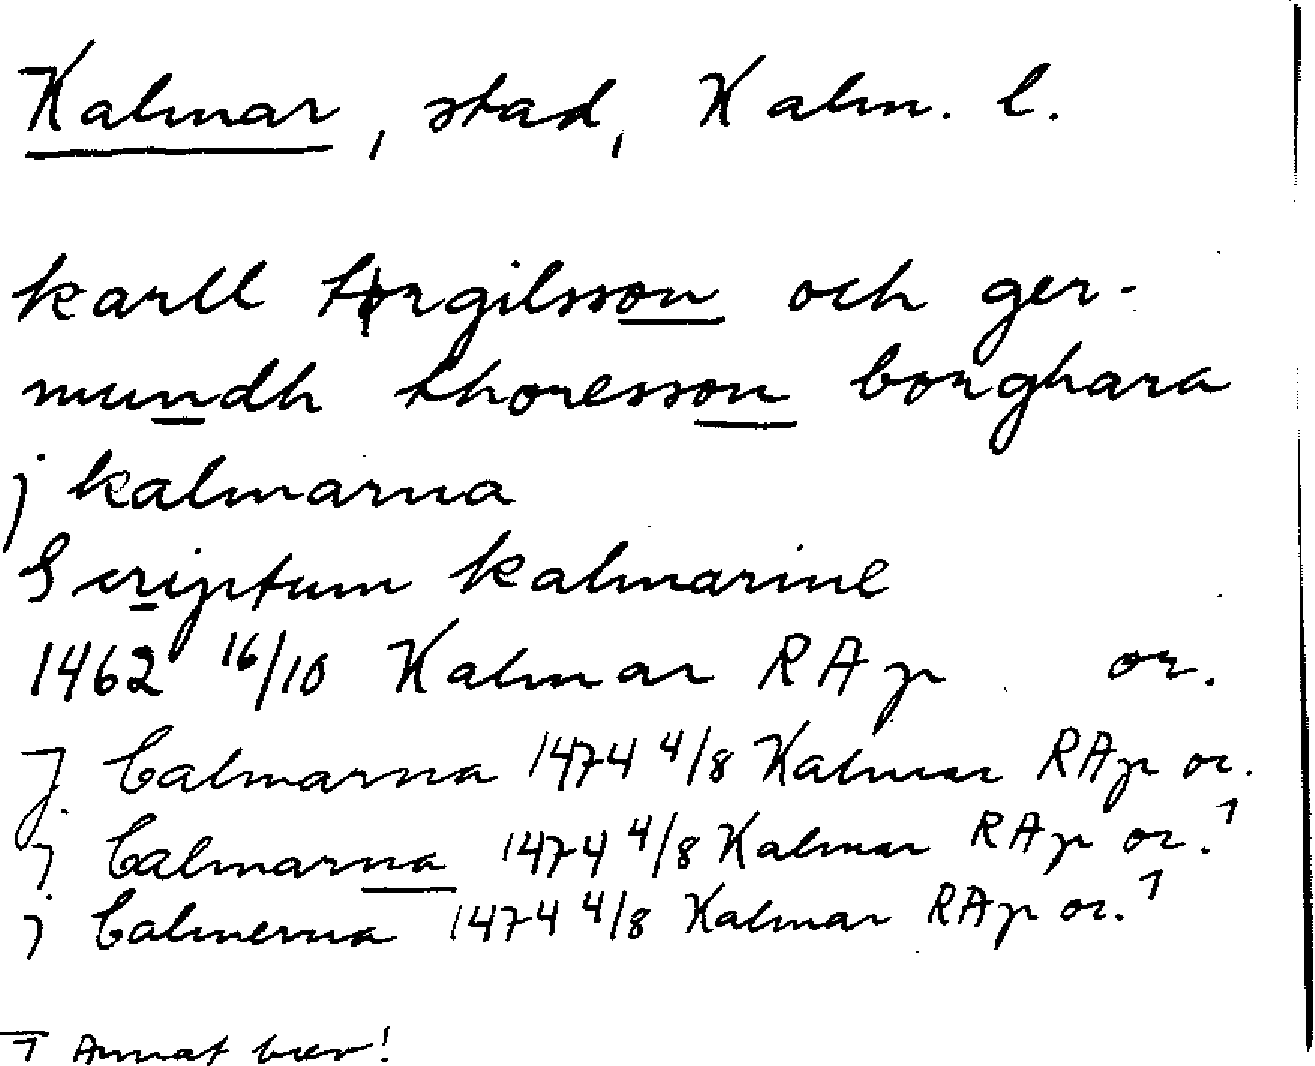 Kalmar, stad, Kalm. l.
karll tørgilsson och ger-
mundh thoresson borghara
j kalmarna
Scriptum kalmarine
1462 16/10 Kalmar RAp or.
J Calmarna 1474 4/8 Kalmar RAp or.
j Calmarna 1474 4/8 Kalmar RAp or.1
j Calmerna 1474 4/8 Kalmar RAp or.1
1 Annat brev!